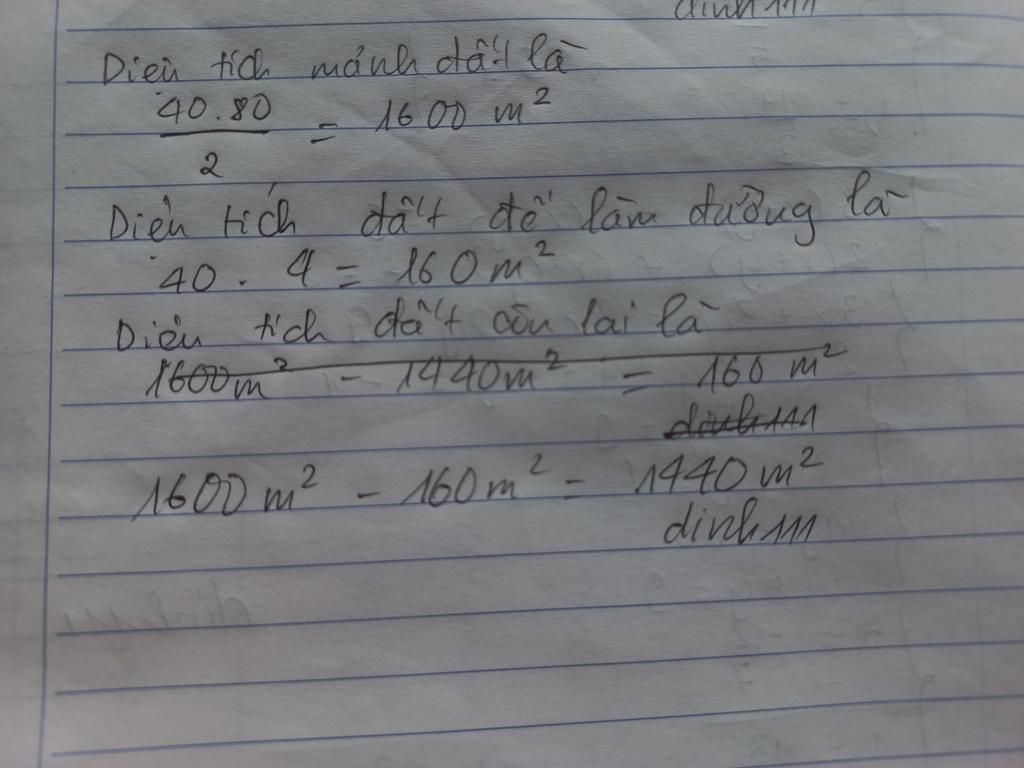 dinh111
Diện tích mảnh đất là
40.80
2
= 1600 m²
Diện tích đất để làm đường là
40 . 4 = 160m²
Diện tích đất còn lại là
1600m² - 1440m² = 160 m²
dinh111
1600m² - 160m² = 1440m²
dinh111